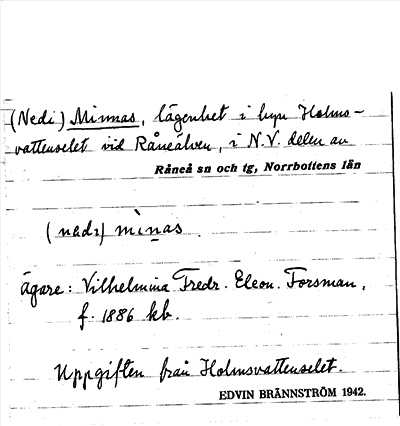 (Nedi) Minnas, lägenhet i byn Holms-
vattenselet vid Råneälven, i N.V. delen av
Råneå sn och tg, Norrbottens län
(nedɩ) mìn̥as
ägare: Vilhelmina Fredr. Eleon. Forsman,
f. 1886 kb.
Uppgiften från Holmsvattenselet.
EDVIN BRÄNNSTRÖM 1942.